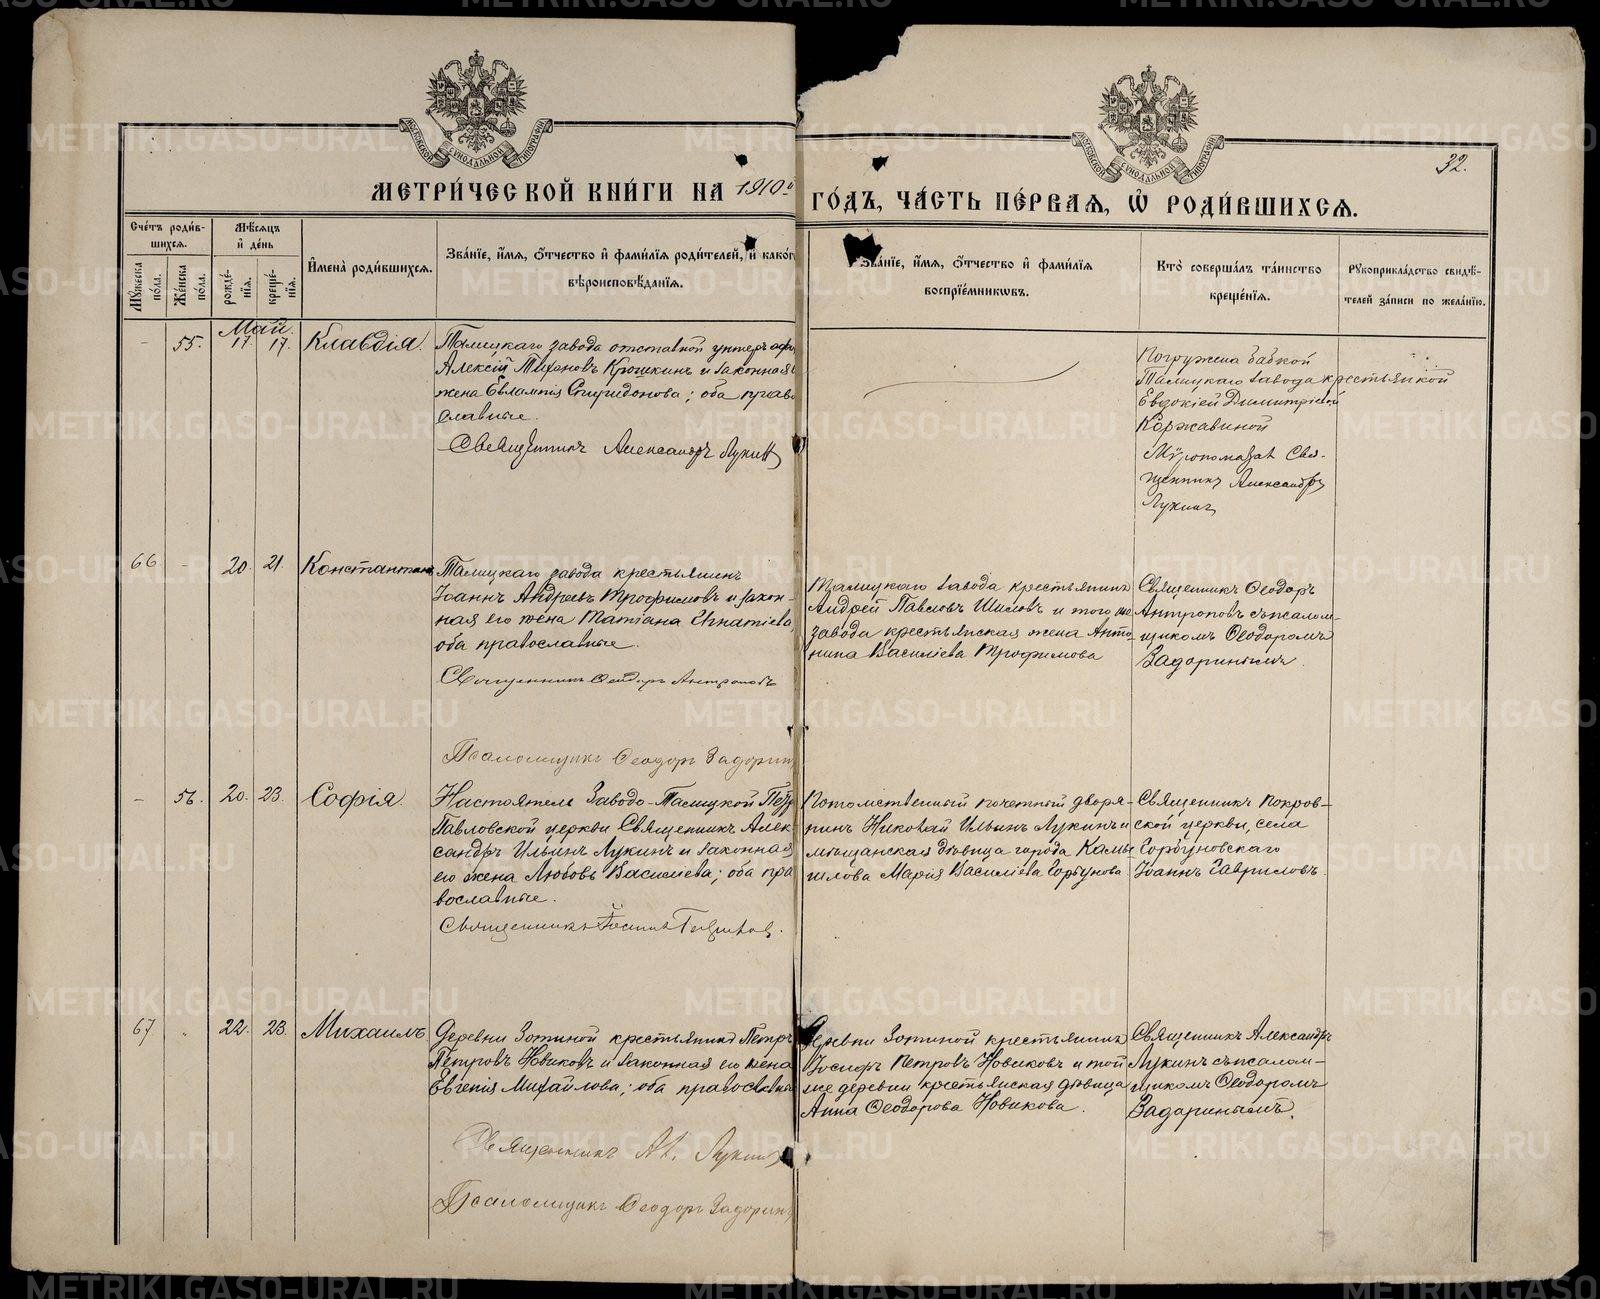 МОСКОВСКОЙ СУНОДАЛЬНОЙ ТИПОГРАФІИ
МОСКОВСКОЙ СУНОДАЛЬНОЙ ТИПОГРАФІИ
32.
МЕТРИ́ЧЕСКОЙ КНИ́ГИ НА 1910й ГО́ДЪ, ЧА́СТЬ ПЕ́РВАЯ, Ѽ РОДИ́ВШИХСЯ.
Сче́тъ роди́вшихся.
Мꙋ́жеска по́ла.
Же́нска по́ла.
Мѣ́сяцъ и҆ де́нь
рожде́нїя.
креще́нїя.
И҆мена̀ роди́вшихся.
Зва́нїе, и҆́мя, ѻ҆́тчество и҆ фами́лїя роди́телей, и҆ како́г
вѣроисповѣ́данїя.
Зва́нїе, и҆́мя, ѻ҆́тчество и҆ фами́лїя
воспрїе́мникѡвъ.
Кто̀ соверша́лъ та́инство
креще́нїя.
Рꙋкоприкла́дство свидѣ́-
телей за́писи по жела́нїю.
Май.
- 55. 17 17. Клавдія.
Талицкаго завода отставной унтеръ офи
Алексій Тихоновъ Крошкинъ и законная е
жена Евлампія Спиридонова; оба право
славные.
Священникъ Александръ Лукинъ
Погружена бабкой
Талицкаго завода крестьянкой
Евдокіей Димитріевой
Коржавиной
Мѵропомазал Свя-
щенникъ Александръ
Лукинъ
66 - 20. 21. Константинъ
Талицкаго завода крестьянинъ
Іоаннъ Андреевъ Трофимовъ и закон-
ная его жена Татіана Игнатіева,
оба православные.
Священникъ Ѳеодоръ Антроповъ
Псаломщикъ Ѳеодоръ Задорин
Талицкаго завода крестьянинъ
Андрей Павловъ Шиловъ и того же
завода крестьянская жена Анто
нина Василіева Трофимова
Священникъ Ѳеодоръ
Антроповъ съ псалом-
щикомъ Ѳеодоромъ
Задоринымъ.
- 56. 20. 23. Софія.
Настоятель Заводо-Талицкой Петр
Павловской церкви Священникъ Алек
сандръ Ильинъ Лукинъ и законная
его жена Любовь Василіева; оба пра
вославные.
Священникъ Іоаннъ Гавриловъ.
Потомственный почетный дворя-
нинъ Николай Ильинъ Лукинъ и
мѣщанская дѣвица города Камы
шлова Марія Василіева Горбунова
Священникъ Покров-
ской церкви, села
Горбуновскаго
Іоаннъ Гавриловъ.
67 " 22. 23. Михаилъ
Деревни Зотиной крестьянинъ Петръ
Петровъ Новиковъ и законная его жена
Евгенія Михайлова; оба православны
Священникъ Ал. Лукинъ
Псаломщикъ Ѳеодоръ Задорин
Деревни Зотиной крестьянинъ
Іосифъ Петровъ Новиковъ и той
же деревни крестьянская дѣвица
Анна Ѳеодорова Новикова.
Священникъ Александръ
Лукинъ съ псалом-
щикомъ Ѳеодоромъ
Задоринымъ.
METRIKI.GASO-URAL.RU